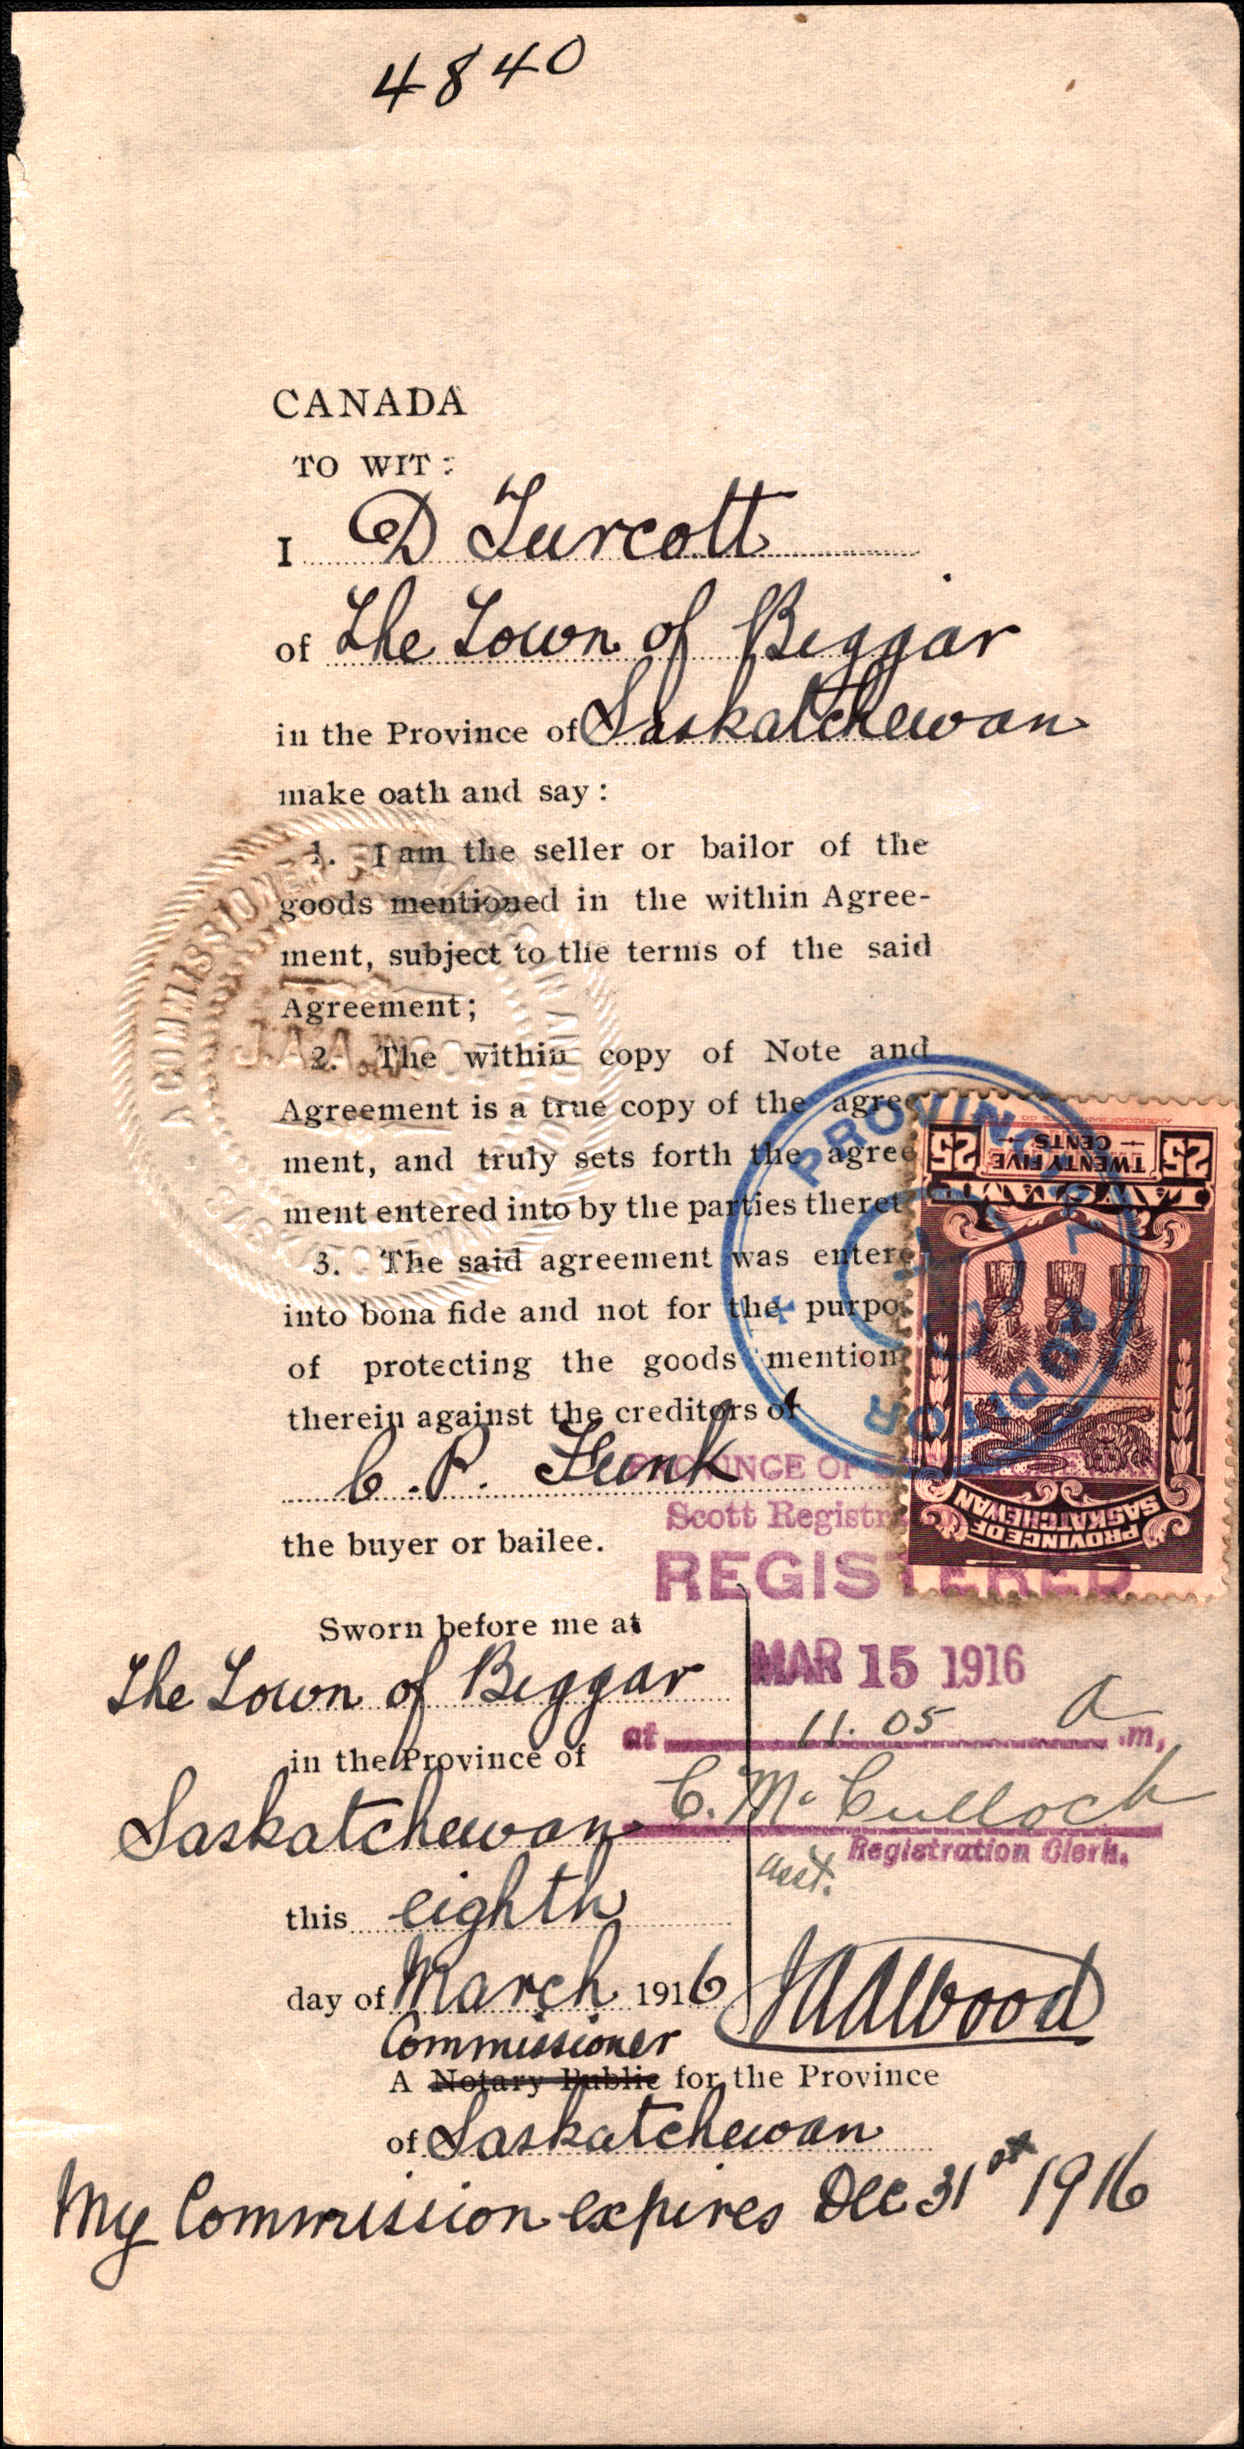 4840
CANADA
TO WIT:
I D Turcott
of The Town of Biggar
in the Province of Saskatchewan
make oath and say:
1. I am the seller or bailor of the
goods mentioned in the within Agree-
ment, subject to the terms of the said
Agreement;
2. The within copy of Note and
Agreement is a true copy of the agree
ment, and truly sets forth the agree
ment entered into by the parties theret
3. The said agreement was entere
into bona fide and not for the purpo
of protecting the goods mention
therein against the creditors of
C. P. Funk
the buyer or bailee.
A COMMISSIONER
PROVINCIAL AUDITOR
25 TWENTY FIVE CENTS 25
PROVINCE OF SASKATCHEWAN
PROVINCE OF
Scott Registr
REGISTERED
MAR 15 1916
at 11.05 a .m,
C. McCulloch
Registration Clerk.
asst.
Sworn before me at
The Town of Biggar
in the Province of
Saskatchewan
this eighth
day of March 1916
JAAWood
Commissioner
A Notary Public for the Province
of Saskatchewan
My Commission expires Dec 31st 1916